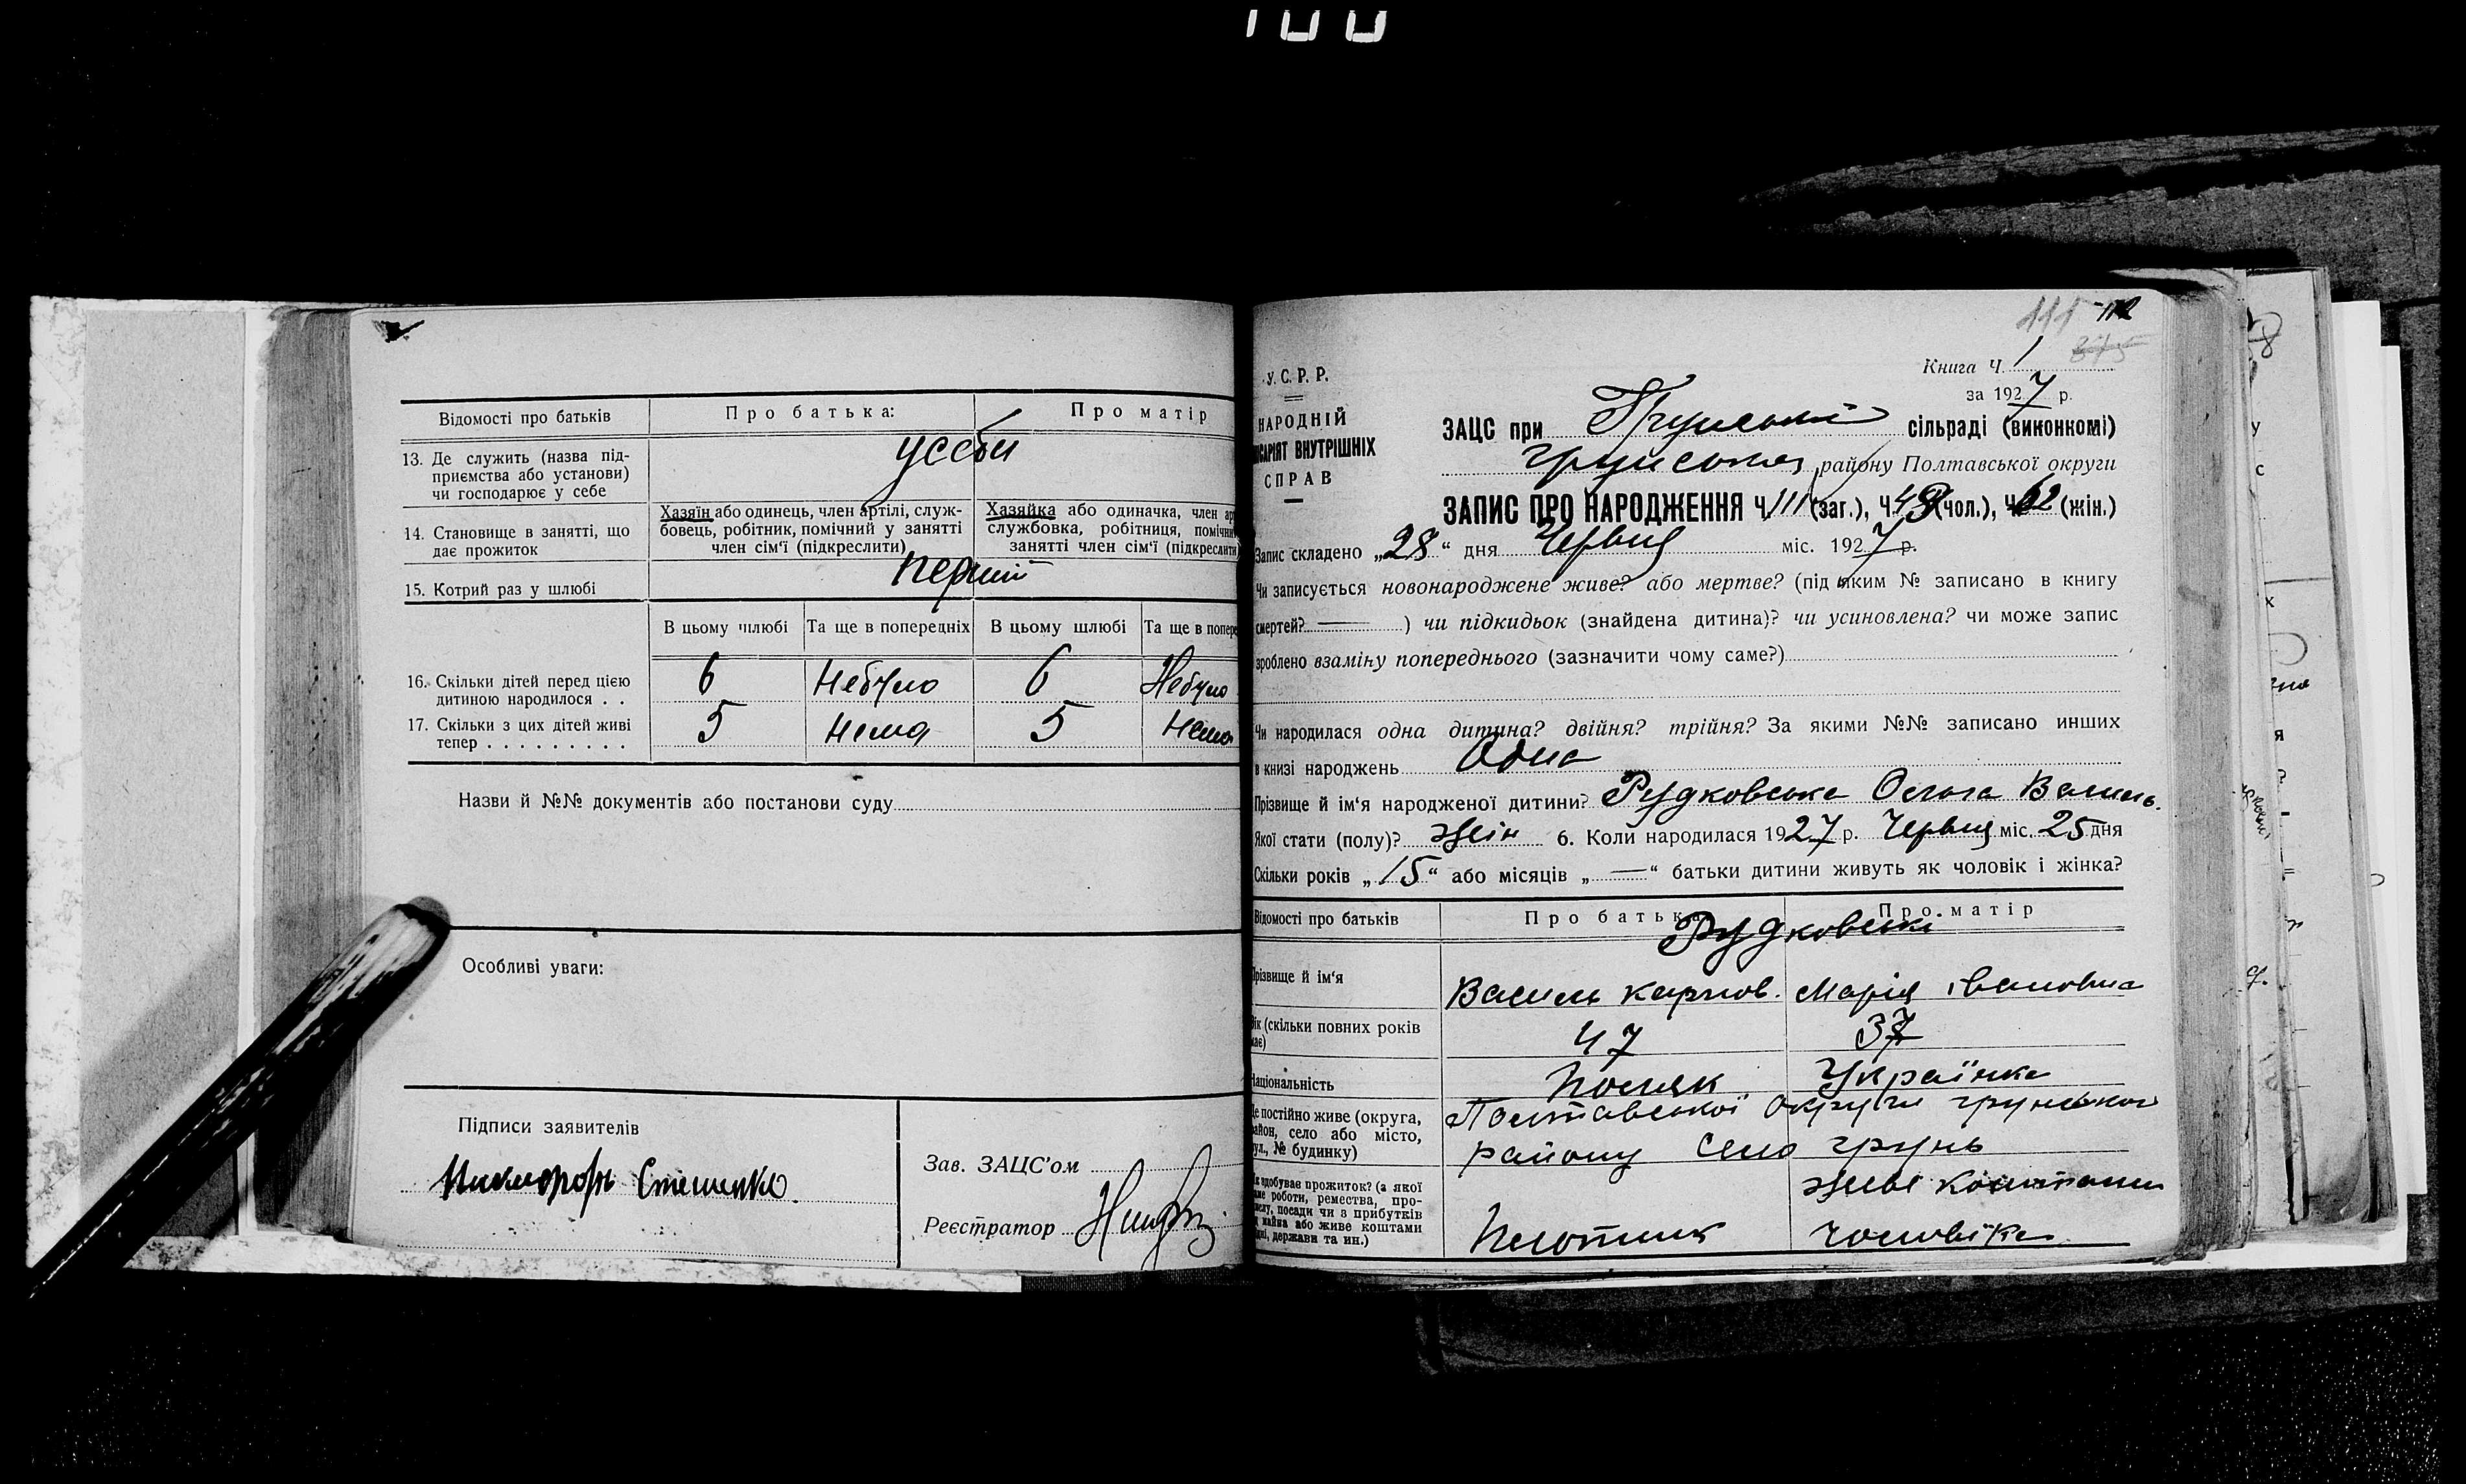 100
Відомості про батьків
Про батька:
Про матір
13. Де служить (назва під-
приємства або установи)
чи господарює у себе
у себи
14. Становище в занятті, що
дає прожиток
Хазяїн або одинець, член артілі, служ-
бовець, робітник, помічний у занятті
член сім'ї (підкреслити)
Хазяйка або одиначка, член ар
службовка, робітниця, помічни
занятті член сім'ї (підкреслити
15. Котрий раз у шлюбі
перший
В цьому шлюбі
Та ще в попередніх
В цьому шлюбі
Та ще в попере
16. Скільки дітей перед цією
дитиною народилося . .
6 Небуло 6 Небуло
17. Скільки з цих дітей живі
тепер . . . . . . . . .
5 нема 5 нема
Назви й №№ документів або постанови суду
Особливі уваги:
Підписи заявителів
Стешенко
Зав. ЗАЦС'ом
Реєстратор
111 112
375
Книга Ч. 1
за 1927 р.
У. С. Р. Р.
НАРОДНІЙ
ІСАРІЯТ ВНУТРІШНІХ
СПРАВ
ЗАЦС при Грунській сільраді (виконкомі)
грунського району Полтавської округи
ЗАПИС ПРО НАРОДЖЕННЯ Ч. 111 (заг.), Ч. 49 (чол.), Ч. 62 (жін.)
Запис складено „28“ дня Червня міс. 1927 р.
Чи записується новонароджене живе? або мертве? (під яким № записано в книгу
смертей? ) чи підкидьок (знайдена дитина)? чи усиновлена? чи може запис
зроблено взаміну попереднього (зазначити чому саме?)
Чи народилася одна дитина? двійня? трійня? За якими №№ записано инших
в книзі народжень Одна
Прізвище й ім'я народженої дитини? Рудковська Ольга Василь.
Якої стати (полу)? жін 6. Коли народилася 1927 р. Червня міс. 25 дня
Скільки років „15“ або місяців „—“ батьки дитини живуть як чоловік і жінка?
Відомості про батьків
Про батька
Про матір
Рудковські
Прізвище й ім'я
Василь карпов. Марія івановна
Вік (скільки повних років
має)
47 37
Національність
поляк Українка
Де постійно живе (округа,
район, село або місто,
вул., № будинку)
Полтавської округи грунського
району село грунь
Як здобуває прожиток? (з якої
саме роботи, ремества, про-
мислу, посади чи з прибутків
від майна або живе коштами
рідні, держави та ин.)
Плотник
живе коштами
чоловіка